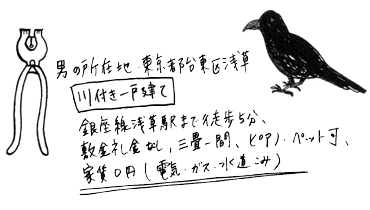 男の所在地・東京都台東区浅草
川付き一戸建て
銀座線浅草駅まで徒歩5分、
敷金礼金なし、三畳一間、ピアノ・ペット可、
家賃0円(電気・ガス・水道込み)